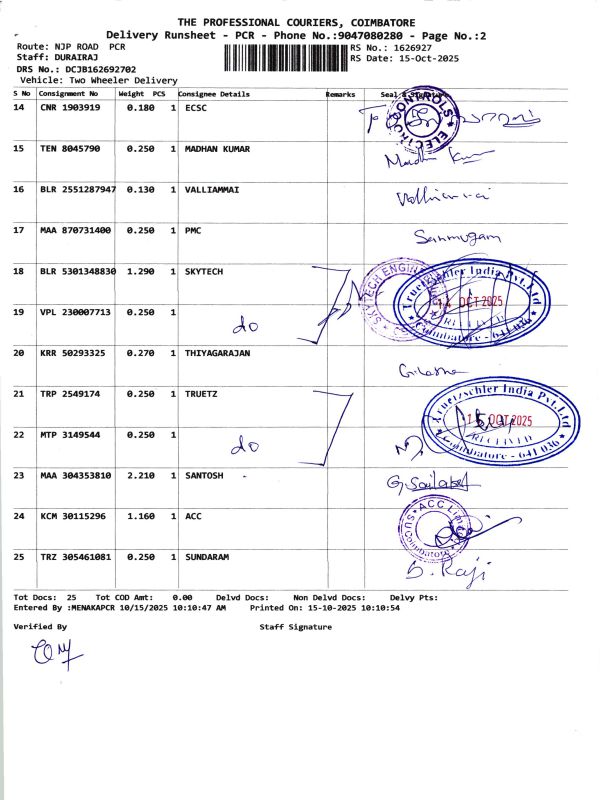 THE PROFESSIONAL COURIERS, COIMBATORE
Delivery Runsheet - PCR - Phone No.:9047080280 - Page No.:2
Route: NJP ROAD PCR
RS No.: 1626927
Staff: DURAIRAJ
RS Date: 15-Oct-2025
DRS No.: DCJB162692702
Vehicle: Two Wheeler Delivery
S No Consignment No Weight PCS Consignee Details Remarks Seal & Signature
14 CNR 1903919 0.180 1 ECSC
ELECTRO CONTROLS
15 TEN 8045790 0.250 1 MADHAN KUMAR
Madhan Kumar
16 BLR 2551287947 0.130 1 VALLIAMMAI
Valliammai
17 MAA 870731400 0.250 1 PMC
Sanmugam
18 BLR 5301348830 1.290 1 SKYTECH
SKYTECH ENGINEERING
Truetzschler India Pvt.Ltd
14 OCT 2025
RECEIVED
Coimbatore - 641 036
19 VPL 230007713 0.250 1
do
20 KRR 50293325 0.270 1 THIYAGARAJAN
21 TRP 2549174 0.250 1 TRUETZ
Truetzschler India Pvt.Ltd
15 OCT 2025
RECEIVED
Coimbatore - 641 036
22 MTP 3149544 0.250 1
do
23 MAA 304353810 2.210 1 SANTOSH -
24 KCM 30115296 1.160 1 ACC
ACC Limited
Coimbatore
25 TRZ 305461081 0.250 1 SUNDARAM
S. Raji
Tot Docs: 25 Tot COD Amt: 0.00 Delvd Docs: Non Delvd Docs: Delvy Pts:
Entered By :MENAKAPCR 10/15/2025 10:10:47 AM Printed On: 15-10-2025 10:10:54
Verified By Staff Signature